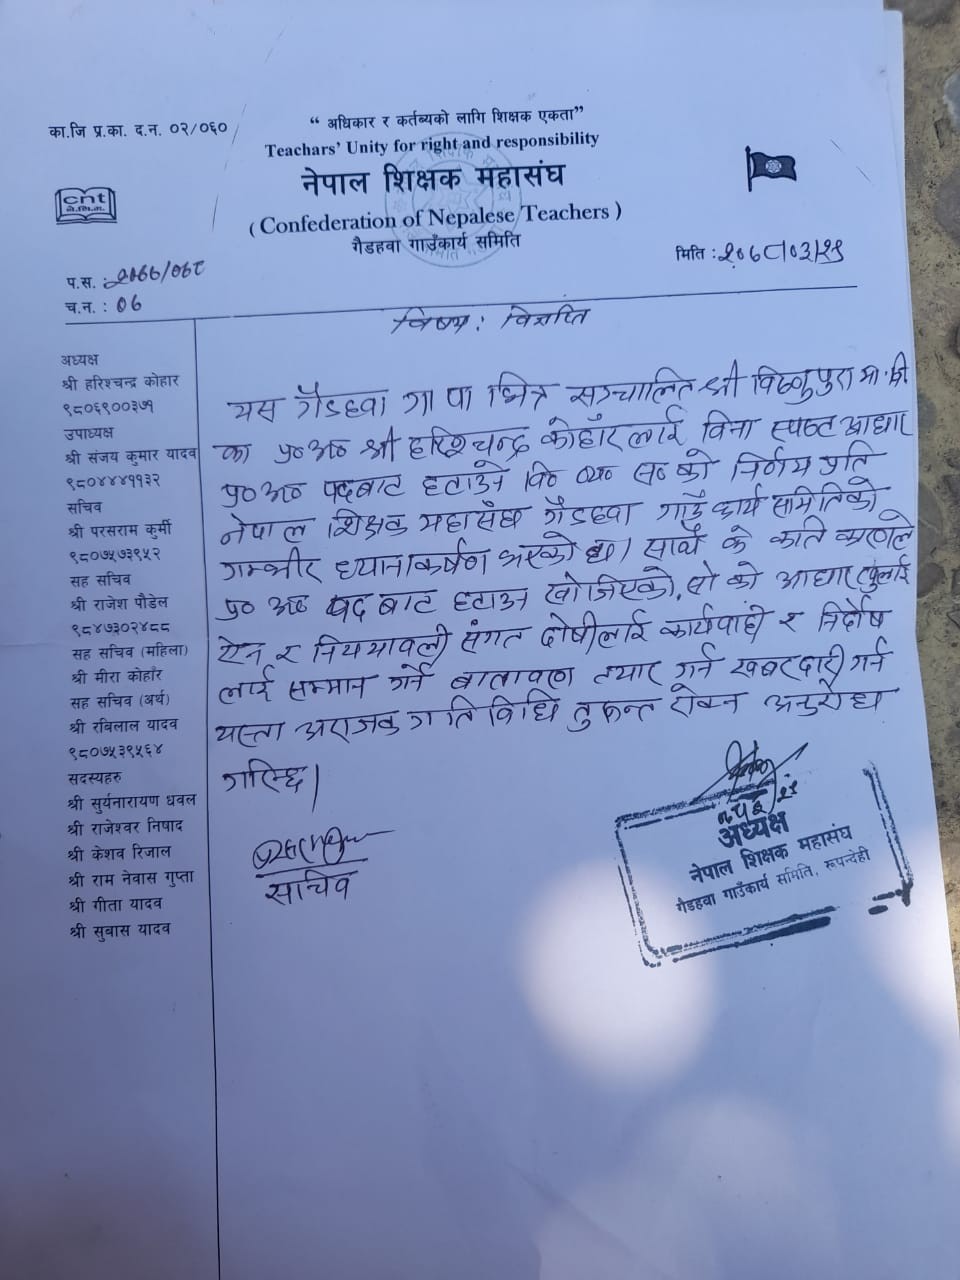 का.जि प्र.का. द.न. ०२/०६०
“ अधिकार र कर्तब्यको लागि शिक्षक एकता”
Teachars' Unity for right and responsibility
नेपाल शिक्षक महासंघ
( Confederation of Nepalese Teachers )
गैडहवा गाउँकार्य समिति
cnt
ने.शि.म.
मिति :
प.स. :
च.न. : ०६
विषय: विज्ञप्ति
अध्यक्ष
श्री हरिश्चन्द्र कोहार
९८०६९००३७१
उपाध्यक्ष
श्री संजय कुमार यादव
९८०४४४११३२
सचिव
श्री परसराम कुर्मी
९८०७५७३९५२
सह सचिव
श्री राजेश पौडेल
९८४७३०२४८८
सह सचिव (महिला)
श्री मीरा कोहाँर
सह सचिव (अर्थ)
श्री रबिलाल यादव
९८०७५३९५६४
सदस्यहरु
श्री सुर्यनारायण धवल
श्री राजेश्वर निषाद
श्री केशव रिजाल
श्री राम नेवास गुप्ता
श्री गीता यादव
श्री सुबास यादव
यस गैडहवा गा पा भित्र सञ्चालित श्री विष्णुपुरा मा.वि
का प्र०अ० श्री हरिश्चन्द्र कोहाँरलाई विना स्पष्ट आधार
प्र०अ० पदबाट हटाउने वि० व्य० स० को निर्णय प्रति
नेपाल शिक्षक महासंघ गैडहवा गाउँ कार्य समितिको
गम्भीर ध्यानाकर्षण भएको छ। साथै के कति कारणले
प्र० अ० पद बाट हटाउन खोजिएको, सो को आधार
ऐन र नियमावली संगत दोषीलाई कार्यवाही र निर्दोष
लाई सम्मान गर्ने वातावरण तयार गर्न खबरदारी गर्न
यस्ता अराजक गतिविधि तुरुन्त रोक्न अनुरोध
गरिन्छ।
सचिव
अध्यक्ष
नेपाल शिक्षक महासंघ
गैडहवा गाउँकार्य समिति, रूपन्देही